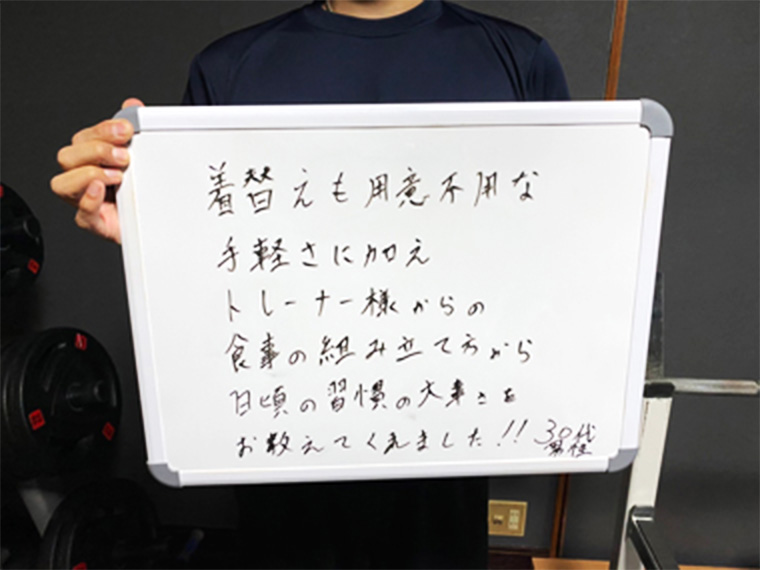 着替えも用意不用な
手軽さに加え
トレーナー様からの
食事の組み立て方から
日頃の習慣の大事さを
お教えてくれました!! 30代
男性